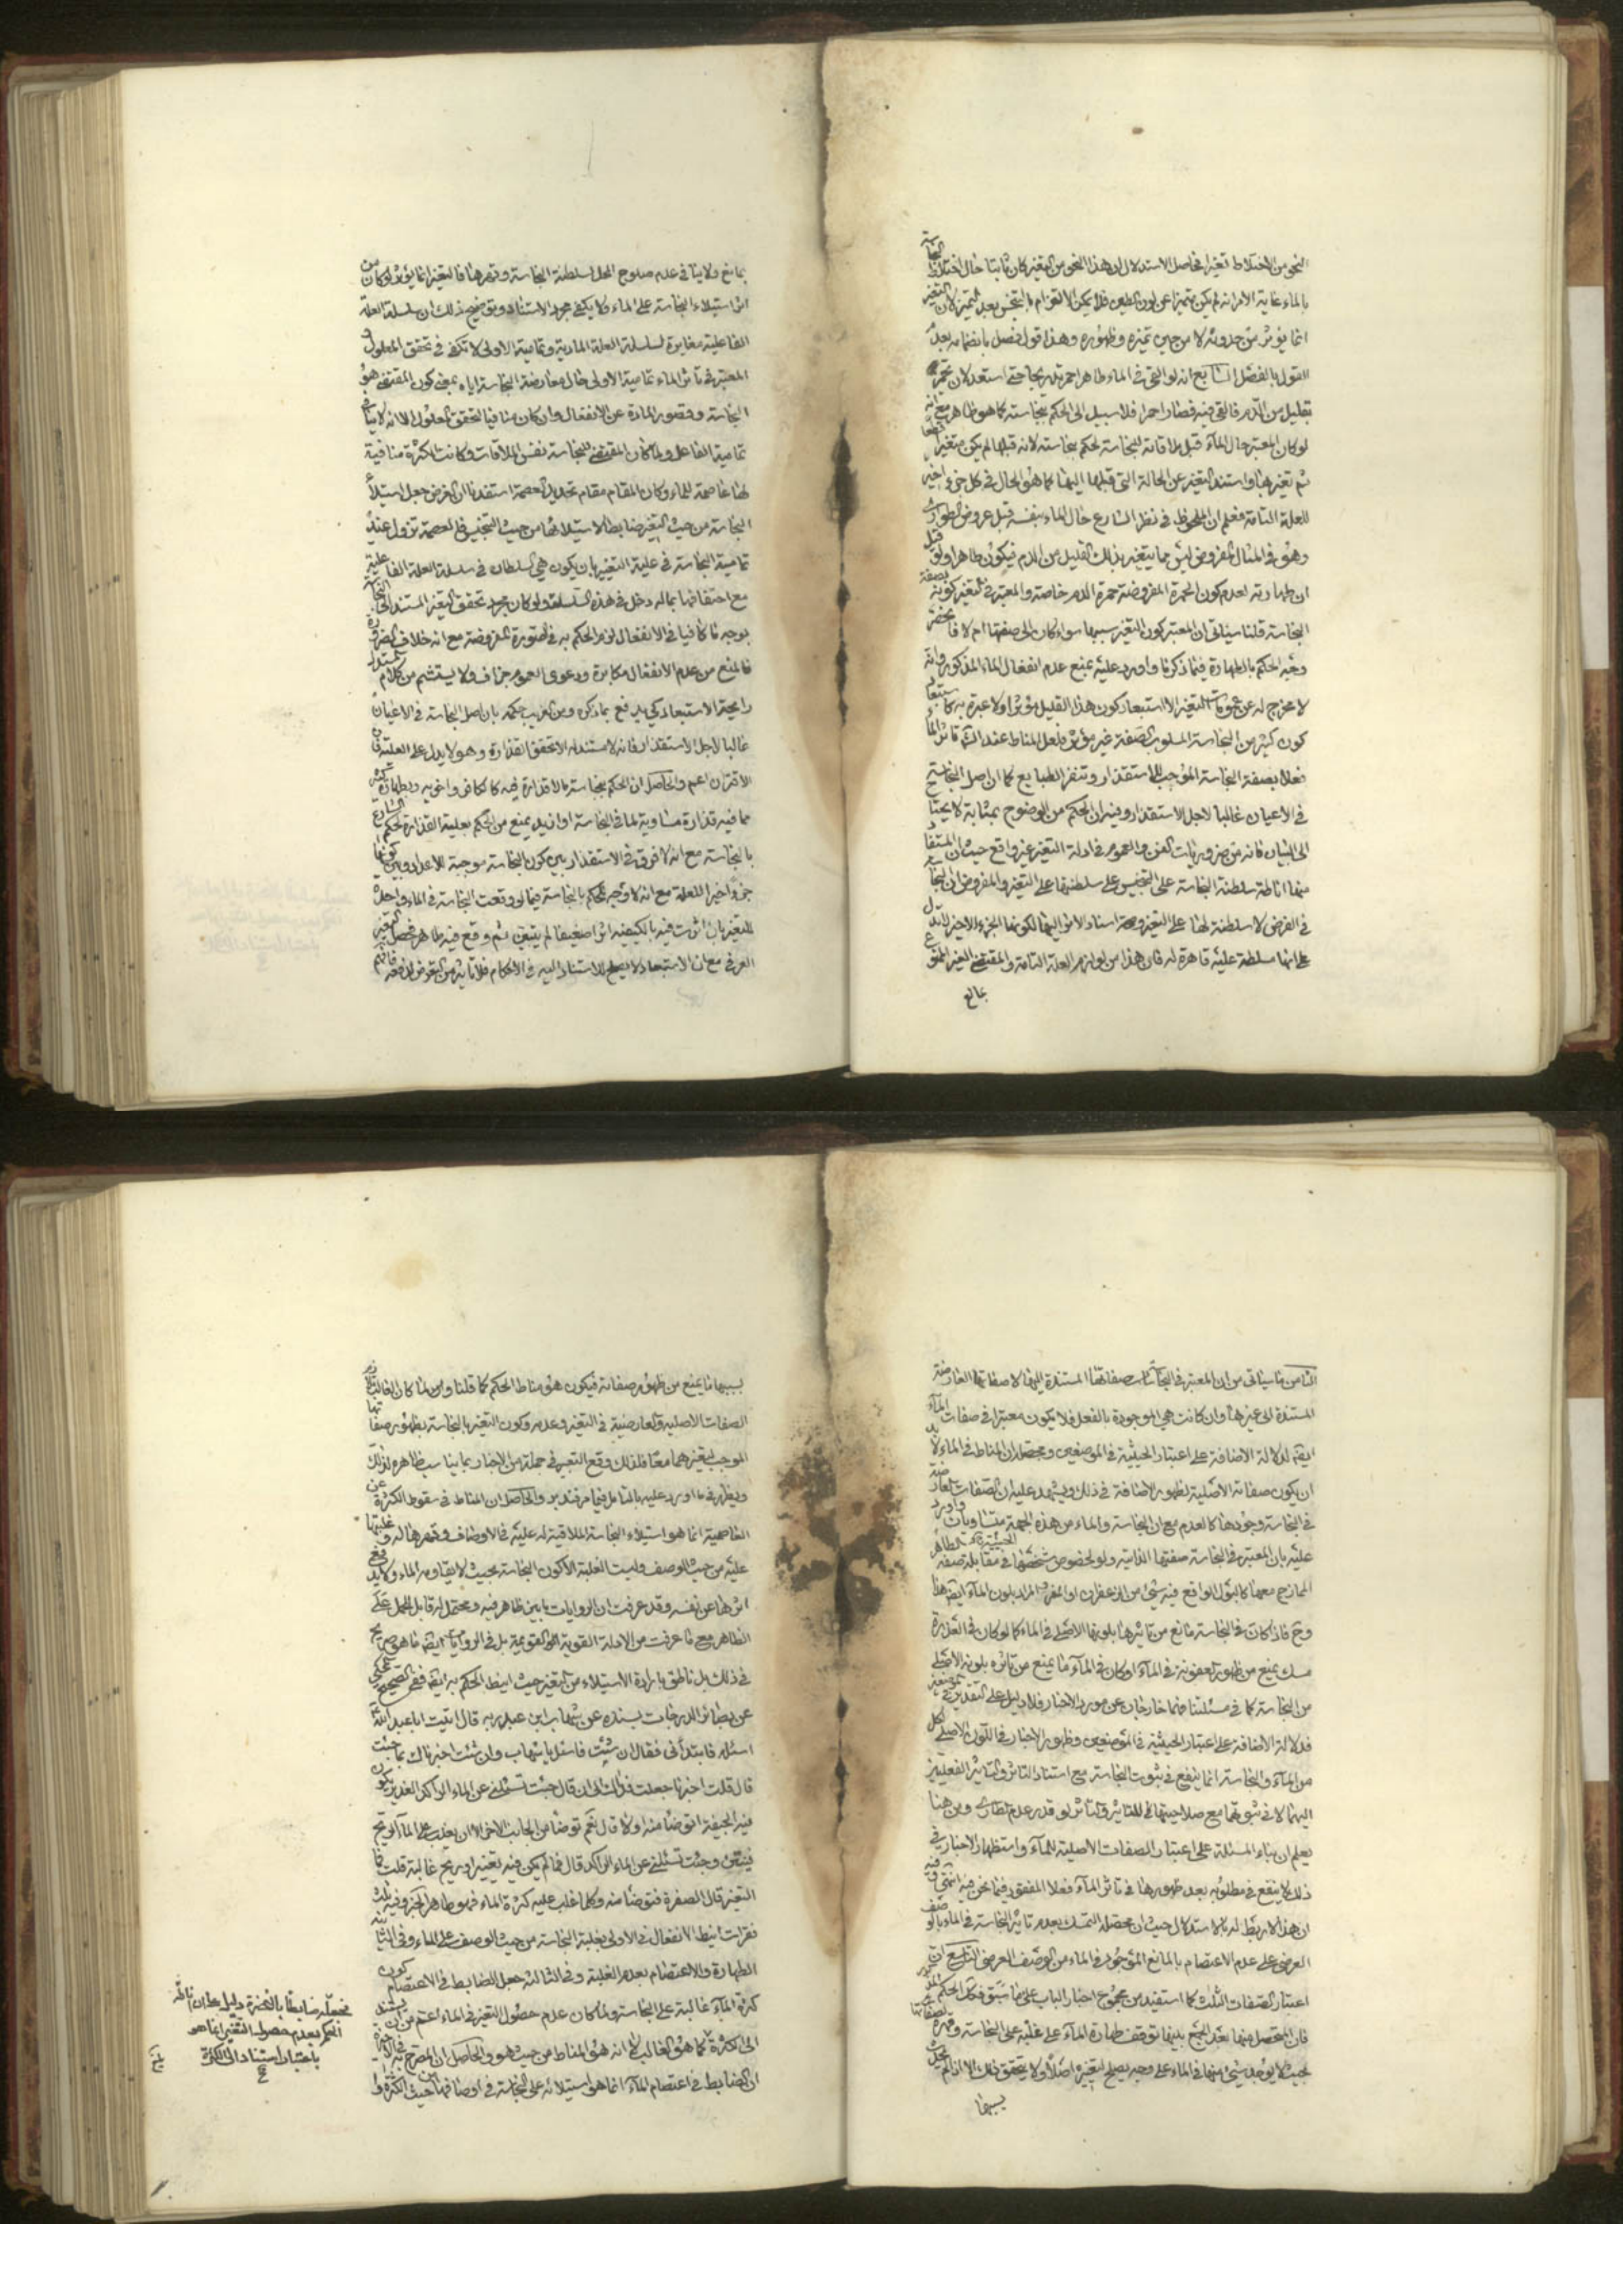 النحو من الاختلاط تغيرا فحاصل الاستدلال ان هذا النحو من التغير كان ثابتا حال اختلاط النجاسة
بالماء غاية الامر انه لم يكن متميزا عن لون الطبعى فلا يمكن الالتزام بالتنجس بعد التميز لان التغير
انما يؤثر من حدوثه لا من حين تميزه وظهوره وهذا قول فصل بانضمامه بعد
القول بالفصل السابع انه لو القى فى الماء طاهر احمر تدريجا حتى استعد لان يحمر
بقليل من الدم فالقى فيه فصار احمرا فلا سبيل الى الحكم بنجاسته كما هو ظاهر مع انه
لو كان المعتبر حال الماء قبل ملاقاته للنجاسة لحكم بنجاسته لانه قبلها لم يكن متغيرا قطعا
ثم تغير بها واستند التغير عن الحالة التى قبلها اليها كما هو الحال فى كل جزء اخير
للعلة التامة فعلم ان الملحوظ فى نظر الشارع حال الماء بنفسه قبل عروض الطوارى
وهو فى المثال المفروض ليس مما يتغير بذلك القليل من الدم فيكون طاهرا ولو قيل
ان طهارته لعدم كون الحمرة المفروضة حمرة الدم خاصة والمعتبر فى التغير كونه بصفة
النجاسة قلنا سياتى ان المعتبر كون التغير بسببها سواء كان الى صفتها ام لا فانحصر
وجه الحكم بالطهارة فيما ذكرنا واورد عليه بمنع عدم انفعال الماء المذكور وانه
لا مخرج له عن عمومات التغير الا استبعاد كون هذا القليل مؤثرا ولا عبرة به كاستبعاد
كون كثير من النجاسة المسلوب الصفة غير مؤثر فلعل المناط عند الشارع تاثر الماء
فعلا بصفة النجاسة الموجب للاستقذار وتنفر الطبايع كما ان اصل النجاسة
فى الاعيان غالبا لاجل الاستقذار وفيه ان الحكم من الوضوح بمثابة لا يحتاج
الى البيان فانه من ضروريات الفن والعموم فى ادلة التغير غير واقع حيث ان المستفاد
منها اناطة سلطنة النجاسة على التنجيس على سلطنتها على التغير والمفروض ان النجاسة
فى الفرض لا سلطنة لها على التغير وصحة اسناد الاثر اليها لكونها الجزء الاخير لا تدل
على انها سلطة عليه قاهرة له فان هذا من لوازم العلة التامة والمقتضى الغير الممنوع
بمانع
بمانع ولا ينافى عدم صلوح المحل لسلطنة النجاسة وقهرها فالتغير انما يؤثر لو كان من
اثر استيلاء النجاسة على الماء ولا يكفى مجرد الاستناد وتوضيح ذلك ان سلسلة العلة
الفاعلية مغايرة لسلسلة العلة المادية وتمامية الاولى لا تكفى فى تحقق المعلول و
المعتبر فى تاثر الماء تمامية الاولى حال معارضة النجاسة اياه بمعنى كون المقتضى هو
النجاسة وقصور المادة عن الانفعال وان كان منافيا لتحقق المعلول الا انه لا ينافى
تمامية الفاعل ولما كان المقتضى للنجاسة نفس الملاقات وكانت الكثرة منافية
لها عاصمة للماء وكان المقام مقام تحديد العصمة استفدنا ان الغرض جعل استيلاء
النجاسة من حيث التغير ضابطا لاستيلائها من حيث التنجيس فالعصمة تزول عند
تمامية النجاسة فى علية التغير بان يكون هى السلطان فى سلسلة العلة الفاعلية
مع احتفافها بما له دخل فى هذه السلسلة ولو كان مجرد تحقق التغير المستند الى النجاسة
بوجه ما كافيا فى الانفعال لزم الحكم به فى الصورة المفروضة مع انه خلاف الضرورة
فالمنع من عدم الانفعال مكابرة ودعوى العموم جزاف ولا يستشم من كلام المستدل
رايحة الاستبعاد كى يدفع بما ذكره ومن الغريب حكمه بان اصل النجاسة فى الاعيان
غالبا لاجل الاستقذار فانه لا مستند له الا تحقق القذارة وهو لا يدل على العلية فان
الاقتران اعم والحاصل ان الحكم بنجاسة ما لا قذارة فيه كالكافر واخويه وبطهارة كثير
مما فيه قذارة مساوية لما فى النجاسة او ازيد يمنع من الحكم بعلية القذارة لحكم الشارع
بالنجاسة مع انه لا فرق فى الاستقذار بين كون النجاسة موجبة للاعداد وبين كونها
جزءا اخيرا للعلة مع انه لا وجه للحكم بالنجاسة فيما لو وقعت النجاسة فى الماء واحدث
للتغير بان اثرت فيه بالكيفية اثرا ضعيفا لم يتبين ثم وقع فيه طاهر فحصل التغير
العرفى مع ان الاستبعاد لا يصلح للاستناد اليه فى الاحكام فلا تاثير من التعرض لدفعه فافهم
الثامن ما سياتى من ان المعتبر فى النجاسات صفاتها المستندة اليها لا صفاتها العارضة
المستندة الى غيرها وان كانت هى الموجودة بالفعل فلا يكون معتبرا فى صفات الماء
ايضا لدلالة الاضافة على اعتبار الحيثية فى الموضعين ومحصله ان المناط فى الماء لا بد
ان يكون صفاته الاصلية لظهور الاضافة فى ذلك ويشهد عليه ان الصفات العارضة
فى النجاسة وجودها كالعدم مع ان النجاسة والماء من هذه الجهة متساويان واورد
عليه بان المعتبر فى النجاسة صفتها الذاتية ولو لخصوص شخصها فى مقابلة صفة الطاهر
الممازج معها كالبول الواقع فيه شئ من الزعفران او المغرة والمراد بلون الماء ايضا هذا
وح فاذا كان فى النجاسة مانع من تاثيرها بلونها الاصلى فى الماء كما لو كان فى العذرة
مسك يمنع من ظهور العفونة فى الماء او كان فى الماء ما يمنع من تاثره بلونه الاصلى
من النجاسة كما فى مسئلتنا فهما خارجان عن مورد الاخبار فلا دليل على التقدير فى الموضعين
فدلالة الاضافة على اعتبار الحيثية فى الموضعين وظهور الاخبار فى اللون الاصلى لكل
من الماء والنجاسة انما ينفع فى ثبوت النجاسة مع استناد التاثر والتاثير الفعليين
اليهما لا فى ثبوتها مع صلاحيتهما للتاثير والتاثر لو قدر عدم الطارى ومن هنا
يعلم ان بناء المسئلة على اعتبار الصفات الاصلية للماء واستظهار الاخبار فى
ذلك لا ينفع فى مطلوبه بعد ظهورها فى تاثر الماء فعلا المفقود فيما نحن فيه انتهى وفيه
ان هذا لا ربط له بالاستدلال حيث ان محصله التمسك بعدم تاثير النجاسة فى الماء بالوصف
العرضى على عدم الاعتصام بالمانع الموجود فى الماء من الوصف العرضى التاسع ان
اعتبار الصفات الثلث كما استفيد من مجموع اخبار الباب على ما سبق فكك الحكم
فان المحصل منها بعد الجمع بينها توقف طهارة الماء على غلبته على النجاسة وقهره لصفاتها
بحيث لا يوجد شئ منها فى الماء على وجه يصلح لتغيره اصلا ولا يتحقق ذلك الا اذا لم يكن
بسببها
بسببها ما يمنع من ظهور صفاته فيكون هو مناط الحكم كما قلنا ولما كان الغالب
الصفات الاصلية والعارضية فى التغير وعدمه وكون التغير بالنجاسة بظهور صفاتها
الموجب لتغيرهما معا فلذلك وقع التعبير فى جملة من الاخبار بما يناسب ظاهره لذلك
ويظهر فى ما اورد عليه بالتامل فيما مر فتدبر والحاصل ان المناط فى سقوط الكثرة عن
العاصمية انما هو استيلاء النجاسة الملاقية له عليه فى الاوصاف وقهرها له وغلبتها
عليه من حيث الوصف وليست الغلبة الا كون النجاسة بحيث لا يقاومه الماء ولا يدفع
اثرها عن نفسه وقد عرفت ان الروايات ما بين ظاهر فيه ومحتمل له قابل للحمل على
الظاهر مع ما عرفت من الادلة القوية القويمة بل فى الروايات ايضا ما هو صريح
فى ذلك بل ناطق بارادة الاستيلاء من التغير حيث انيط الحكم به ايضا ففى الصحيح المحكى
عن بصائر الدرجات بسنده عن شهاب ابن عبد ربه قال اتيت ابا عبد الله
اسئله فابتدأنى فقال ان شئت فاسئل يا شهاب وان شئت اخبرناك بما جئت
قال قلت اخبرنا جعلت فداك الى ان قال جئت تسئلنى عن الماء الراكد الغدير يكون
فيه الجيفة اتوضأ منه اولا قال نعم توضأ من الجانب الاخر الا ان يغلب على الماء الريح
فينتن وجئت تسئلنى عن الماء الراكد قال فما لم يكن فيه تغيير او ريح غالبة قلت فما
التغير قال الصفرة فتوضأ منه وكلما غلب عليه كثرة الماء فهو طاهر الخبر وفيه ثلث
فقرات انيط الانفعال فى الاولى بغلبة النجاسة من حيث الوصف على الماء وفى الثانية
الطهارة والاعتصام بعدم الغلبة وفى الثالثة جعل الضابط فى الاعتصام كون
كثرة الماء غالبة على النجاسة ولما كان عدم حصول التغير فى الماء اعم من ان يستند
الى الكثرة كما هو الغالب الا انه هو المناط من حيث هو والحاصل ان المصرح به فى الاخبار
ان الضابط فى اعتصام الماء انما هو استيلائه على النجاسة فى اوصافها من حيث الكثرة
فجعله ضابطا بالاخرة دليل على ان اناطة
الحكم بعدم حصول التغير انما هو
باعتبار استناده الى الكثرة
صح